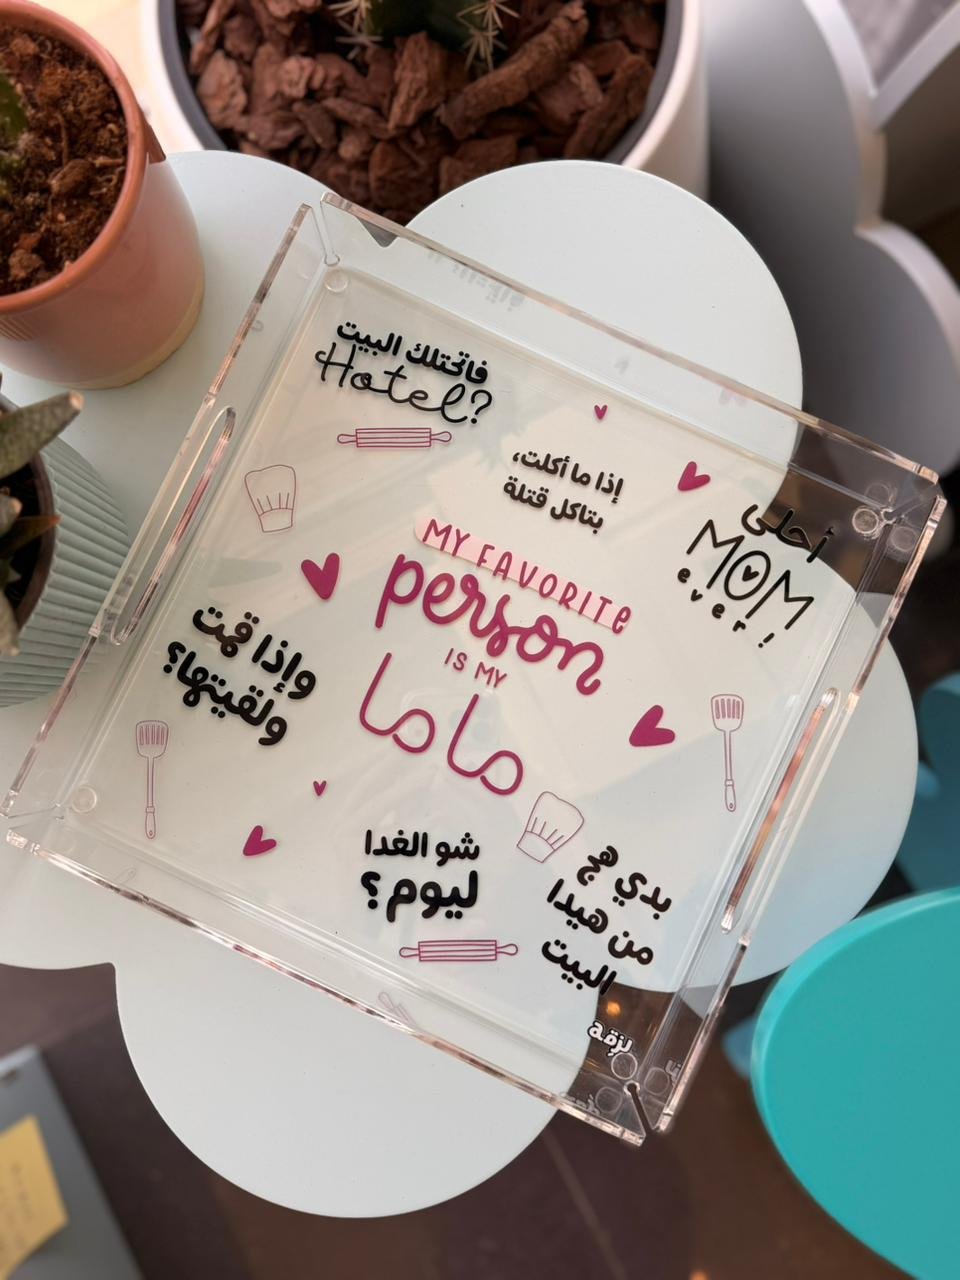 فاتحتلك البيت
Hotel?
إذا ما أكلت،
بتاكل قتلة
أحلى
MOM
ever!
MY FAVORITE
person
IS MY
ماما
وإذا قمت
ولقيتها؟
شو الغدا
ليوم؟
بدي هج
من هيدا
البيت
لزقة